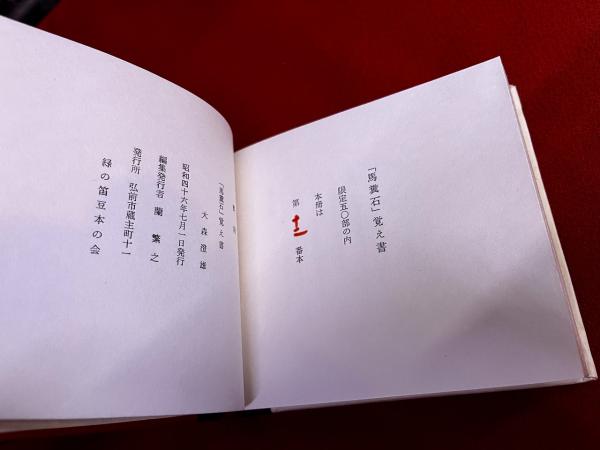 「馬糞石」覚え書
限定五〇部の内
本冊は
第 十二 番本
「馬糞石」覚え書
大森澄雄
昭和四十六年七月一日発行
編集発行者 蘭 繁之
発行所 弘前市蔵主町十一
緑の笛豆本の会